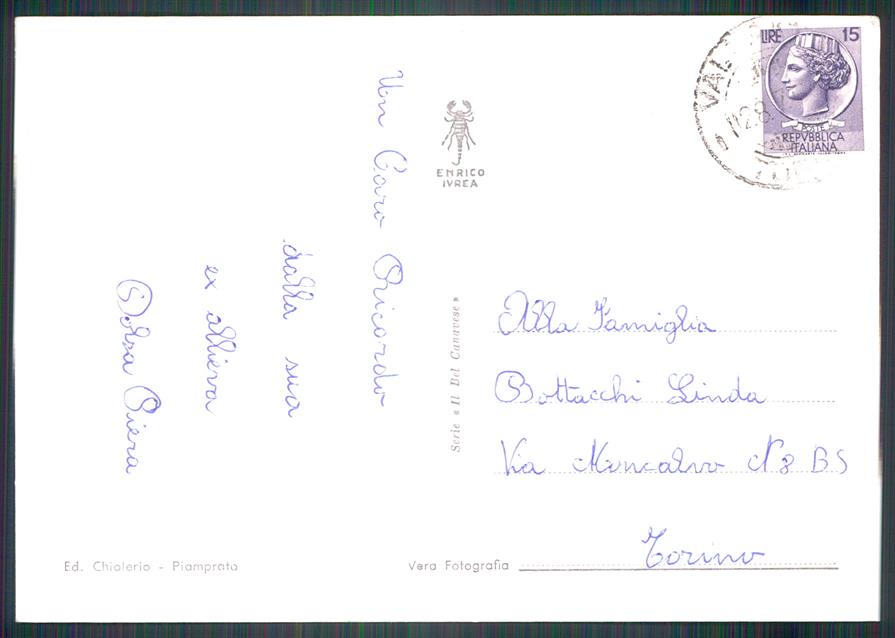 Un Caro Ricordo
dalla sua
ex allieva
Dolsa Piera
ENRICO
IVREA
Serie « Il Bel Canavese »
LIRE 15
POSTE
REPVBBLICA
ITALIANA
VAL
12.8.
Alla Famiglia
Bottacchi Linda
Via Moncalvo N 8 BS
Torino
Ed. Chialerio - Piamprato
Vera Fotografia